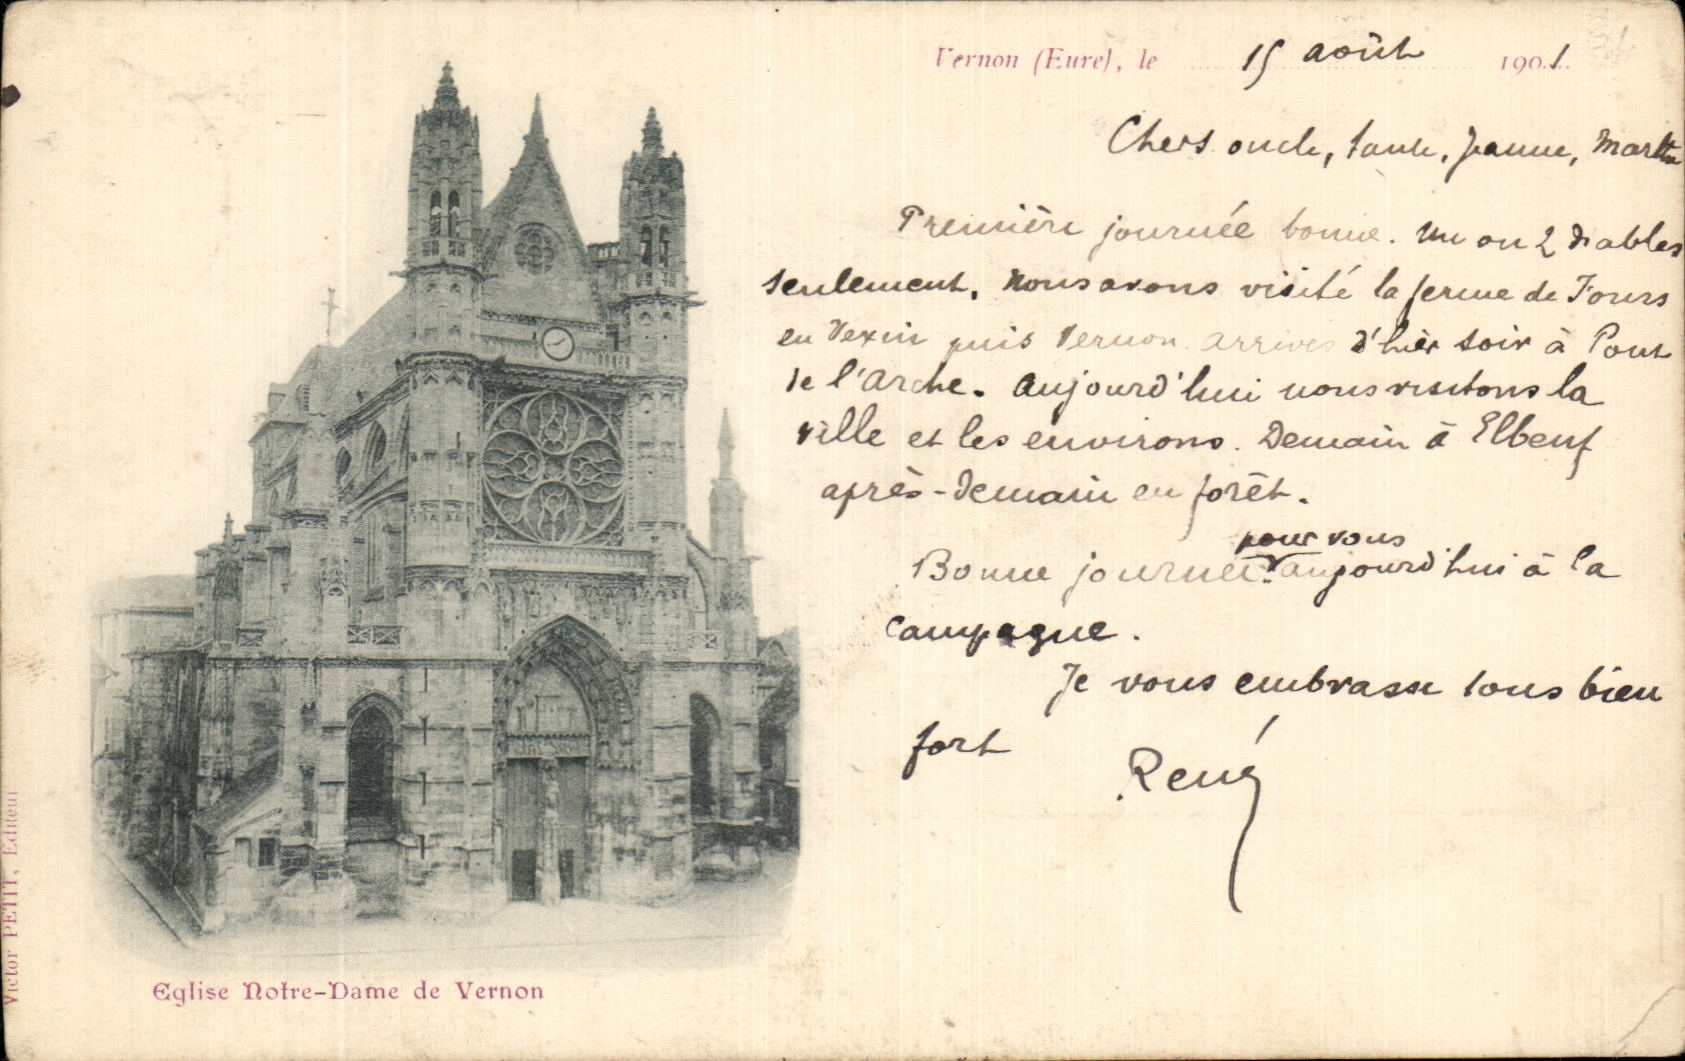 Vernon (Eure), le 15 août 1901.
Chers oncle, tante, Jeanne, Marthe
Première journée bonne. Un ou 2 diables
seulement. Nous avons visité la ferme de Fours
en Vexin puis Vernon. Arrivés d'hier soir à Pont
de l'Arche. Aujourd'hui nous visitons la
ville et les environs. Demain à Elbeuf
après-demain en forêt.
pour vous
Bonne journée aujourd'hui à la
campagne.
Je vous embrasse tous bien
fort
René
Eglise Notre-Dame de Vernon
Victor PETIT, Editeur